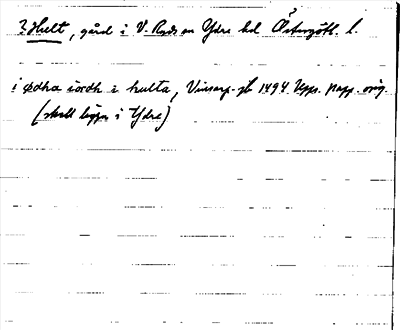 ? Hult, gård i V. Ryds sn Ydre hd Östergötl. l.
i ødha iordh i hulta, Vinsarp. jb 1494 Upps. papp. orig.
(skall ligga i Ydre)